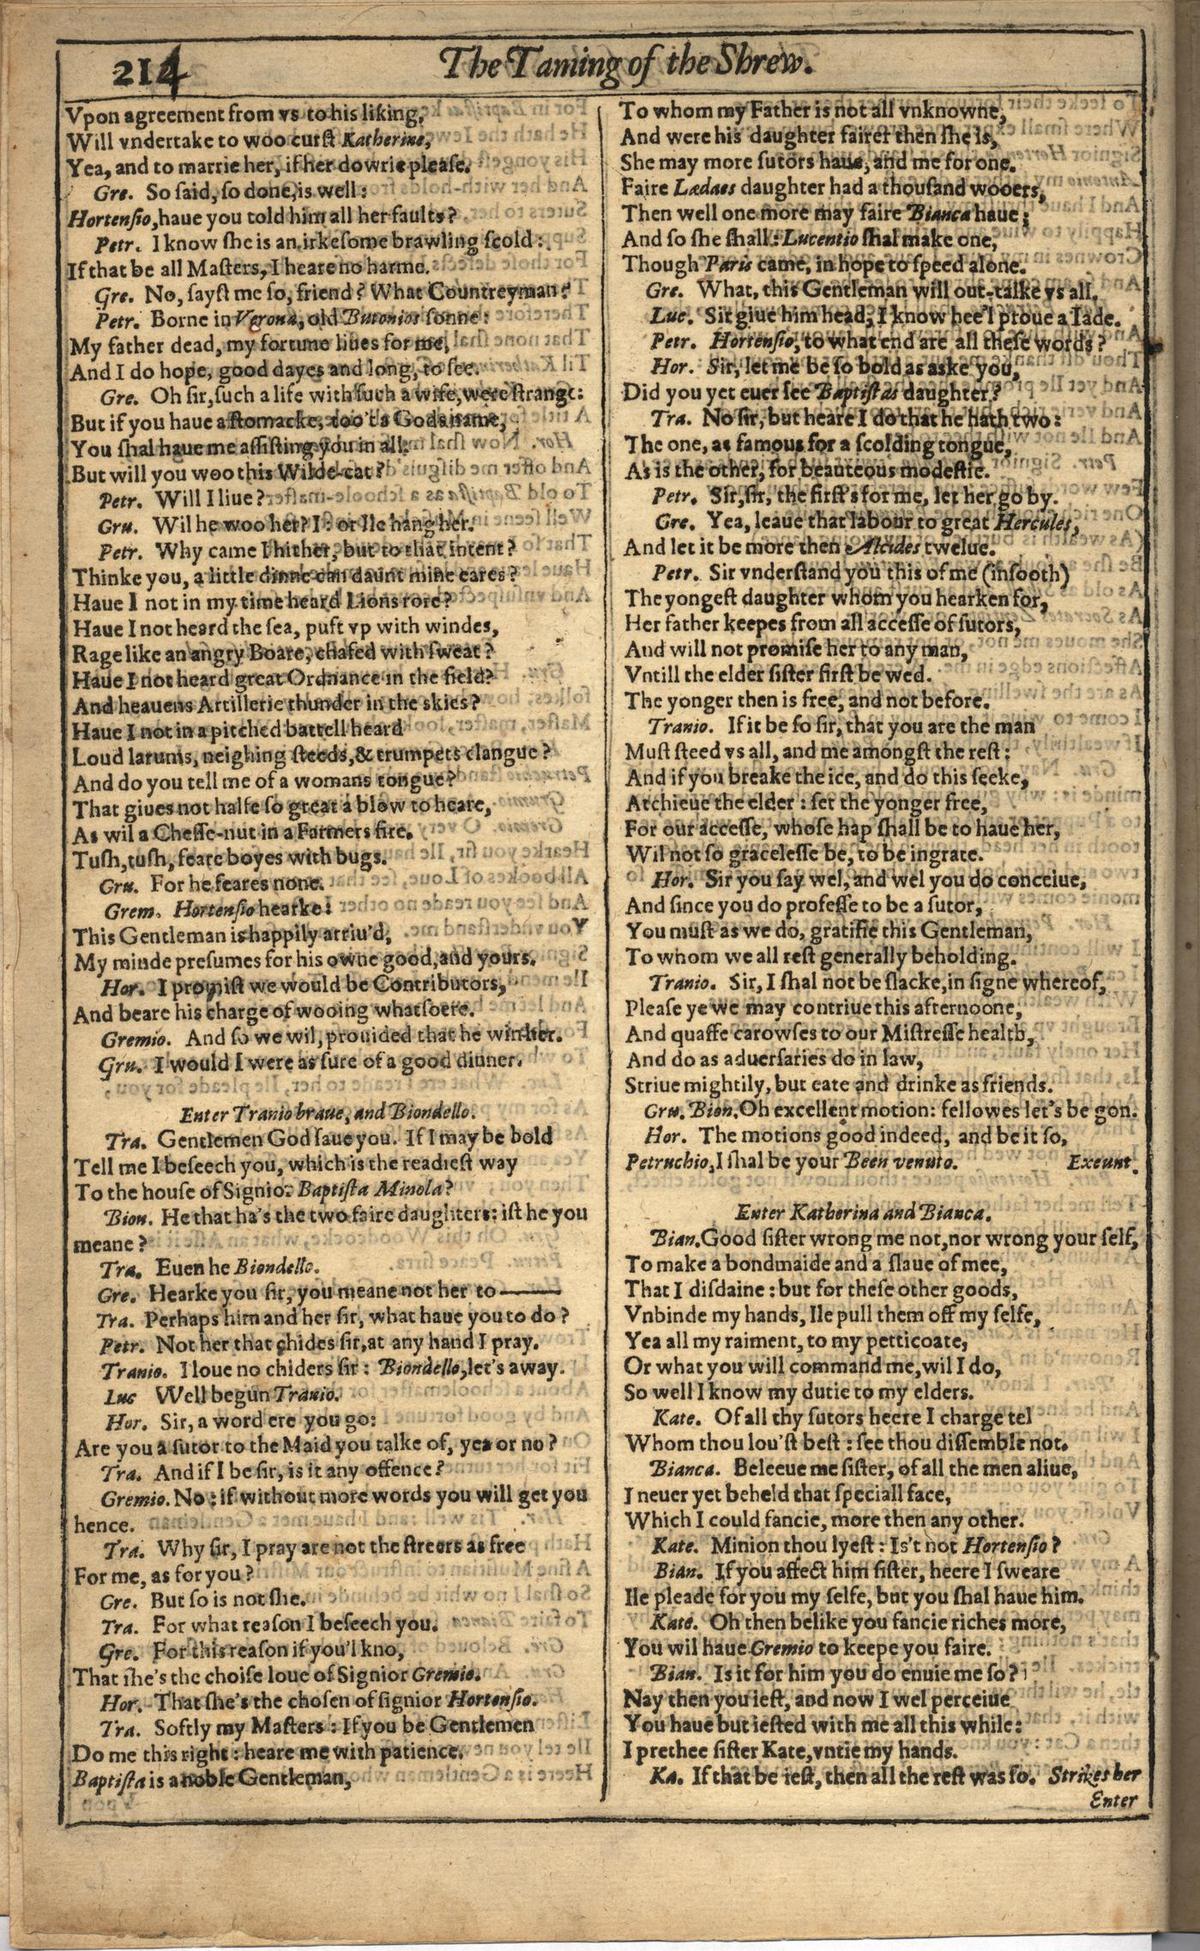 214
The Taming of the Shrew.
Vpon agreement from vs to his liking,
Will vndertake to woo curst Katherine,
Yea, and to marrie her, if her dowrie please.
Gre. So said, so done, is well:
Hortensio, haue you told him all her faults?
Petr. I know she is an irkesome brawling scold:
If that be all Masters, I heare no harme.
Gre. No, sayst me so, friend? What Countreyman?
Petr. Borne in Verona, old Butonios sonne:
My father dead, my fortune liues for me,
And I do hope, good dayes and long, to see.
Gre. Oh sir, such a life with such a wife, were strange:
But if you haue a stomacke, too't a Gods name,
You shal haue me assisting you in all.
But will you woo this Wilde-cat?
Petr. Will I liue?
Gru. Wil he woo her? I: or Ile hang her.
Petr. Why came I hither, but to that intent?
Thinke you, a little dinne can daunt mine eares?
Haue I not in my time heard Lions rore?
Haue I not heard the sea, puft vp with windes,
Rage like an angry Boare, chafed with sweat?
Haue I not heard great Ordnance in the field?
And heauens Artillerie thunder in the skies?
Haue I not in a pitched battell heard
Loud larums, neighing steeds, & trumpets clangue?
And do you tell me of a womans tongue?
That giues not halfe so great a blow to heare,
As wil a Chesse-nut in a Farmers fire.
Tush, tush, feare boyes with bugs.
Gru. For he feares none.
Grem. Hortensio hearke:
This Gentleman is happily arriu'd,
My minde presumes for his owne good, and yours.
Hor. I promist we would be Contributors,
And beare his charge of wooing whatsoere.
Gremio. And so we wil, prouided that he win her.
Gru. I would I were as sure of a good dinner.
Enter Tranio braue, and Biondello.
Tra. Gentlemen God saue you. If I may be bold
Tell me I beseech you, which is the readiest way
To the house of Signior Baptista Minola?
Bion. He that ha's the two faire daughters: ist he you
meane?
Tra. Euen he Biondello.
Gre. Hearke you sir, you meane not her to——
Tra. Perhaps him and her sir, what haue you to do?
Petr. Not her that chides sir, at any hand I pray.
Tranio. I loue no chiders sir: Biondello, let's away.
Luc Well begun Tranio.
Hor. Sir, a word ere you go:
Are you a sutor to the Maid you talke of, yea or no?
Tra. And if I be sir, is it any offence?
Gremio. No: if without more words you will get you
hence.
Tra. Why sir, I pray are not the streets as free
For me, as for you?
Gre. But so is not she.
Tra. For what reason I beseech you.
Gre. For this reason if you'l kno,
That she's the choise loue of Signior Gremio.
Hor. That she's the chosen of signior Hortensio.
Tra. Softly my Masters: If you be Gentlemen
Do me this right: heare me with patience.
Baptista is a noble Gentleman,
To whom my Father is not all vnknowne,
And were his daughter fairer then she is,
She may more sutors haue, and me for one.
Faire Lædaes daughter had a thousand wooers,
Then well one more may faire Bianca haue;
And so she shall: Lucentio shal make one,
Though Paris came, in hope to speed alone.
Gre. What, this Gentleman will out-talke vs all.
Luc. Sir giue him head, I know hee'l proue a Iade.
Petr. Hortensio, to what end are all these words?
Hor. Sir, let me be so bold as aske you,
Did you yet euer see Baptistas daughter?
Tra. No sir, but heare I do that he hath two:
The one, as famous for a scolding tongue,
As is the other, for beauteous modestie.
Petr. Sir, sir, the first's for me, let her go by.
Gre. Yea, leaue that labour to great Hercules,
And let it be more then Alcides twelue.
Petr. Sir vnderstand you this of me (insooth)
The yongest daughter whom you hearken for,
Her father keepes from all accesse of sutors,
And will not promise her to any man,
Vntill the elder sister first be wed.
The yonger then is free, and not before.
Tranio. If it be so sir, that you are the man
Must steed vs all, and me amongst the rest:
And if you breake the ice, and do this seeke,
Atchieue the elder: set the yonger free,
For our accesse, whose hap shall be to haue her,
Wil not so gracelesse be, to be ingrate.
Hor. Sir you say wel, and wel you do conceiue,
And since you do professe to be a sutor,
You must as we do, gratifie this Gentleman,
To whom we all rest generally beholding.
Tranio. Sir, I shal not be slacke, in signe whereof,
Please ye we may contriue this afternoone,
And quaffe carowses to our Mistresse health,
And do as aduersaries do in law,
Striue mightily, but eate and drinke as friends.
Gru. Bion. Oh excellent motion: fellowes let's be gon.
Hor. The motions good indeed, and be it so,
Petruchio, I shal be your Been venuto. Exeunt.
Enter Katherina and Bianca.
Bian. Good sister wrong me not, nor wrong your self,
To make a bondmaide and a slaue of mee,
That I disdaine: but for these other goods,
Vnbinde my hands, Ile pull them off my selfe,
Yea all my raiment, to my petticoate,
Or what you will command me, wil I do,
So well I know my dutie to my elders.
Kate. Of all thy sutors heere I charge tel
Whom thou lou'st best: see thou dissemble not.
Bianca. Beleeue me sister, of all the men aliue,
I neuer yet beheld that speciall face,
Which I could fancie, more then any other.
Kate. Minion thou lyest: Is't not Hortensio?
Bian. If you affect him sister, heere I sweare
Ile pleade for you my selfe, but you shal haue him.
Kate. Oh then belike you fancie riches more,
You wil haue Gremio to keepe you faire.
Bian. Is it for him you do enuie me so?
Nay then you iest, and now I wel perceiue
You haue but iested with me all this while:
I prethee sister Kate, vntie my hands.
Ka. If that be iest, then all the rest was so. Strikes her
Enter